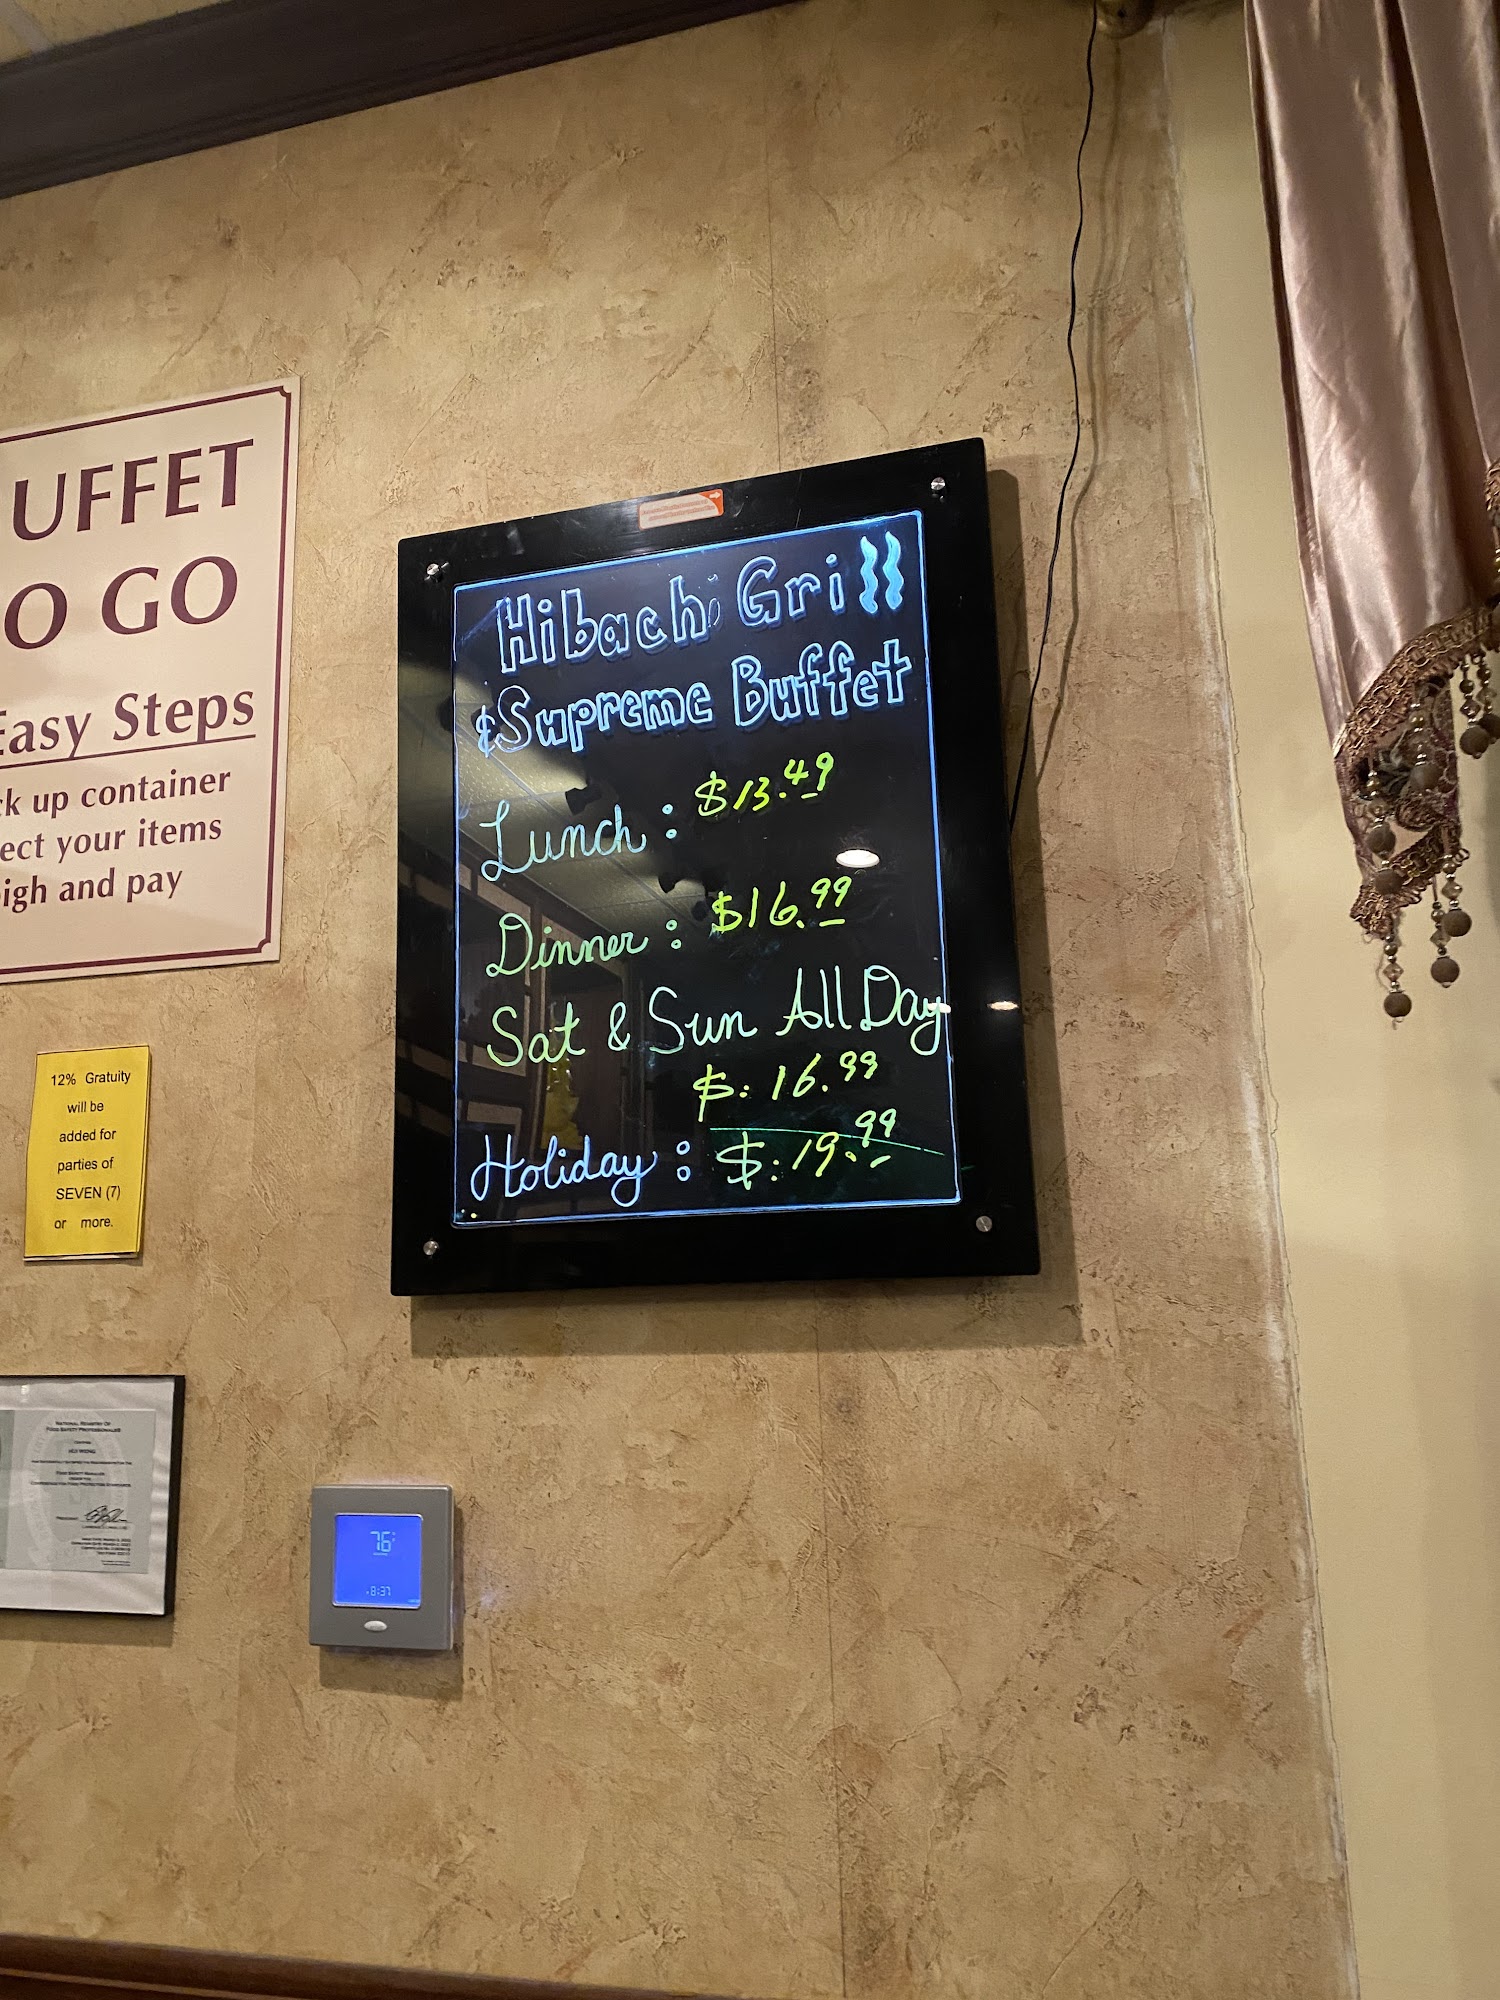 UFFET
O GO
Easy Steps
ck up container
ect your items
eigh and pay
Hibachi Grill
& Supreme Buffet
Lunch : $13.49
Dinner : $16.99
Sat & Sun All Day
$. 16.99
Holiday : $. 19.99
12% Gratuity
will be
added for
parties of
SEVEN (7)
or more.
NATIONAL REGISTRY OF
FOOD SAFETY PROFESSIONALS
76°
8:37